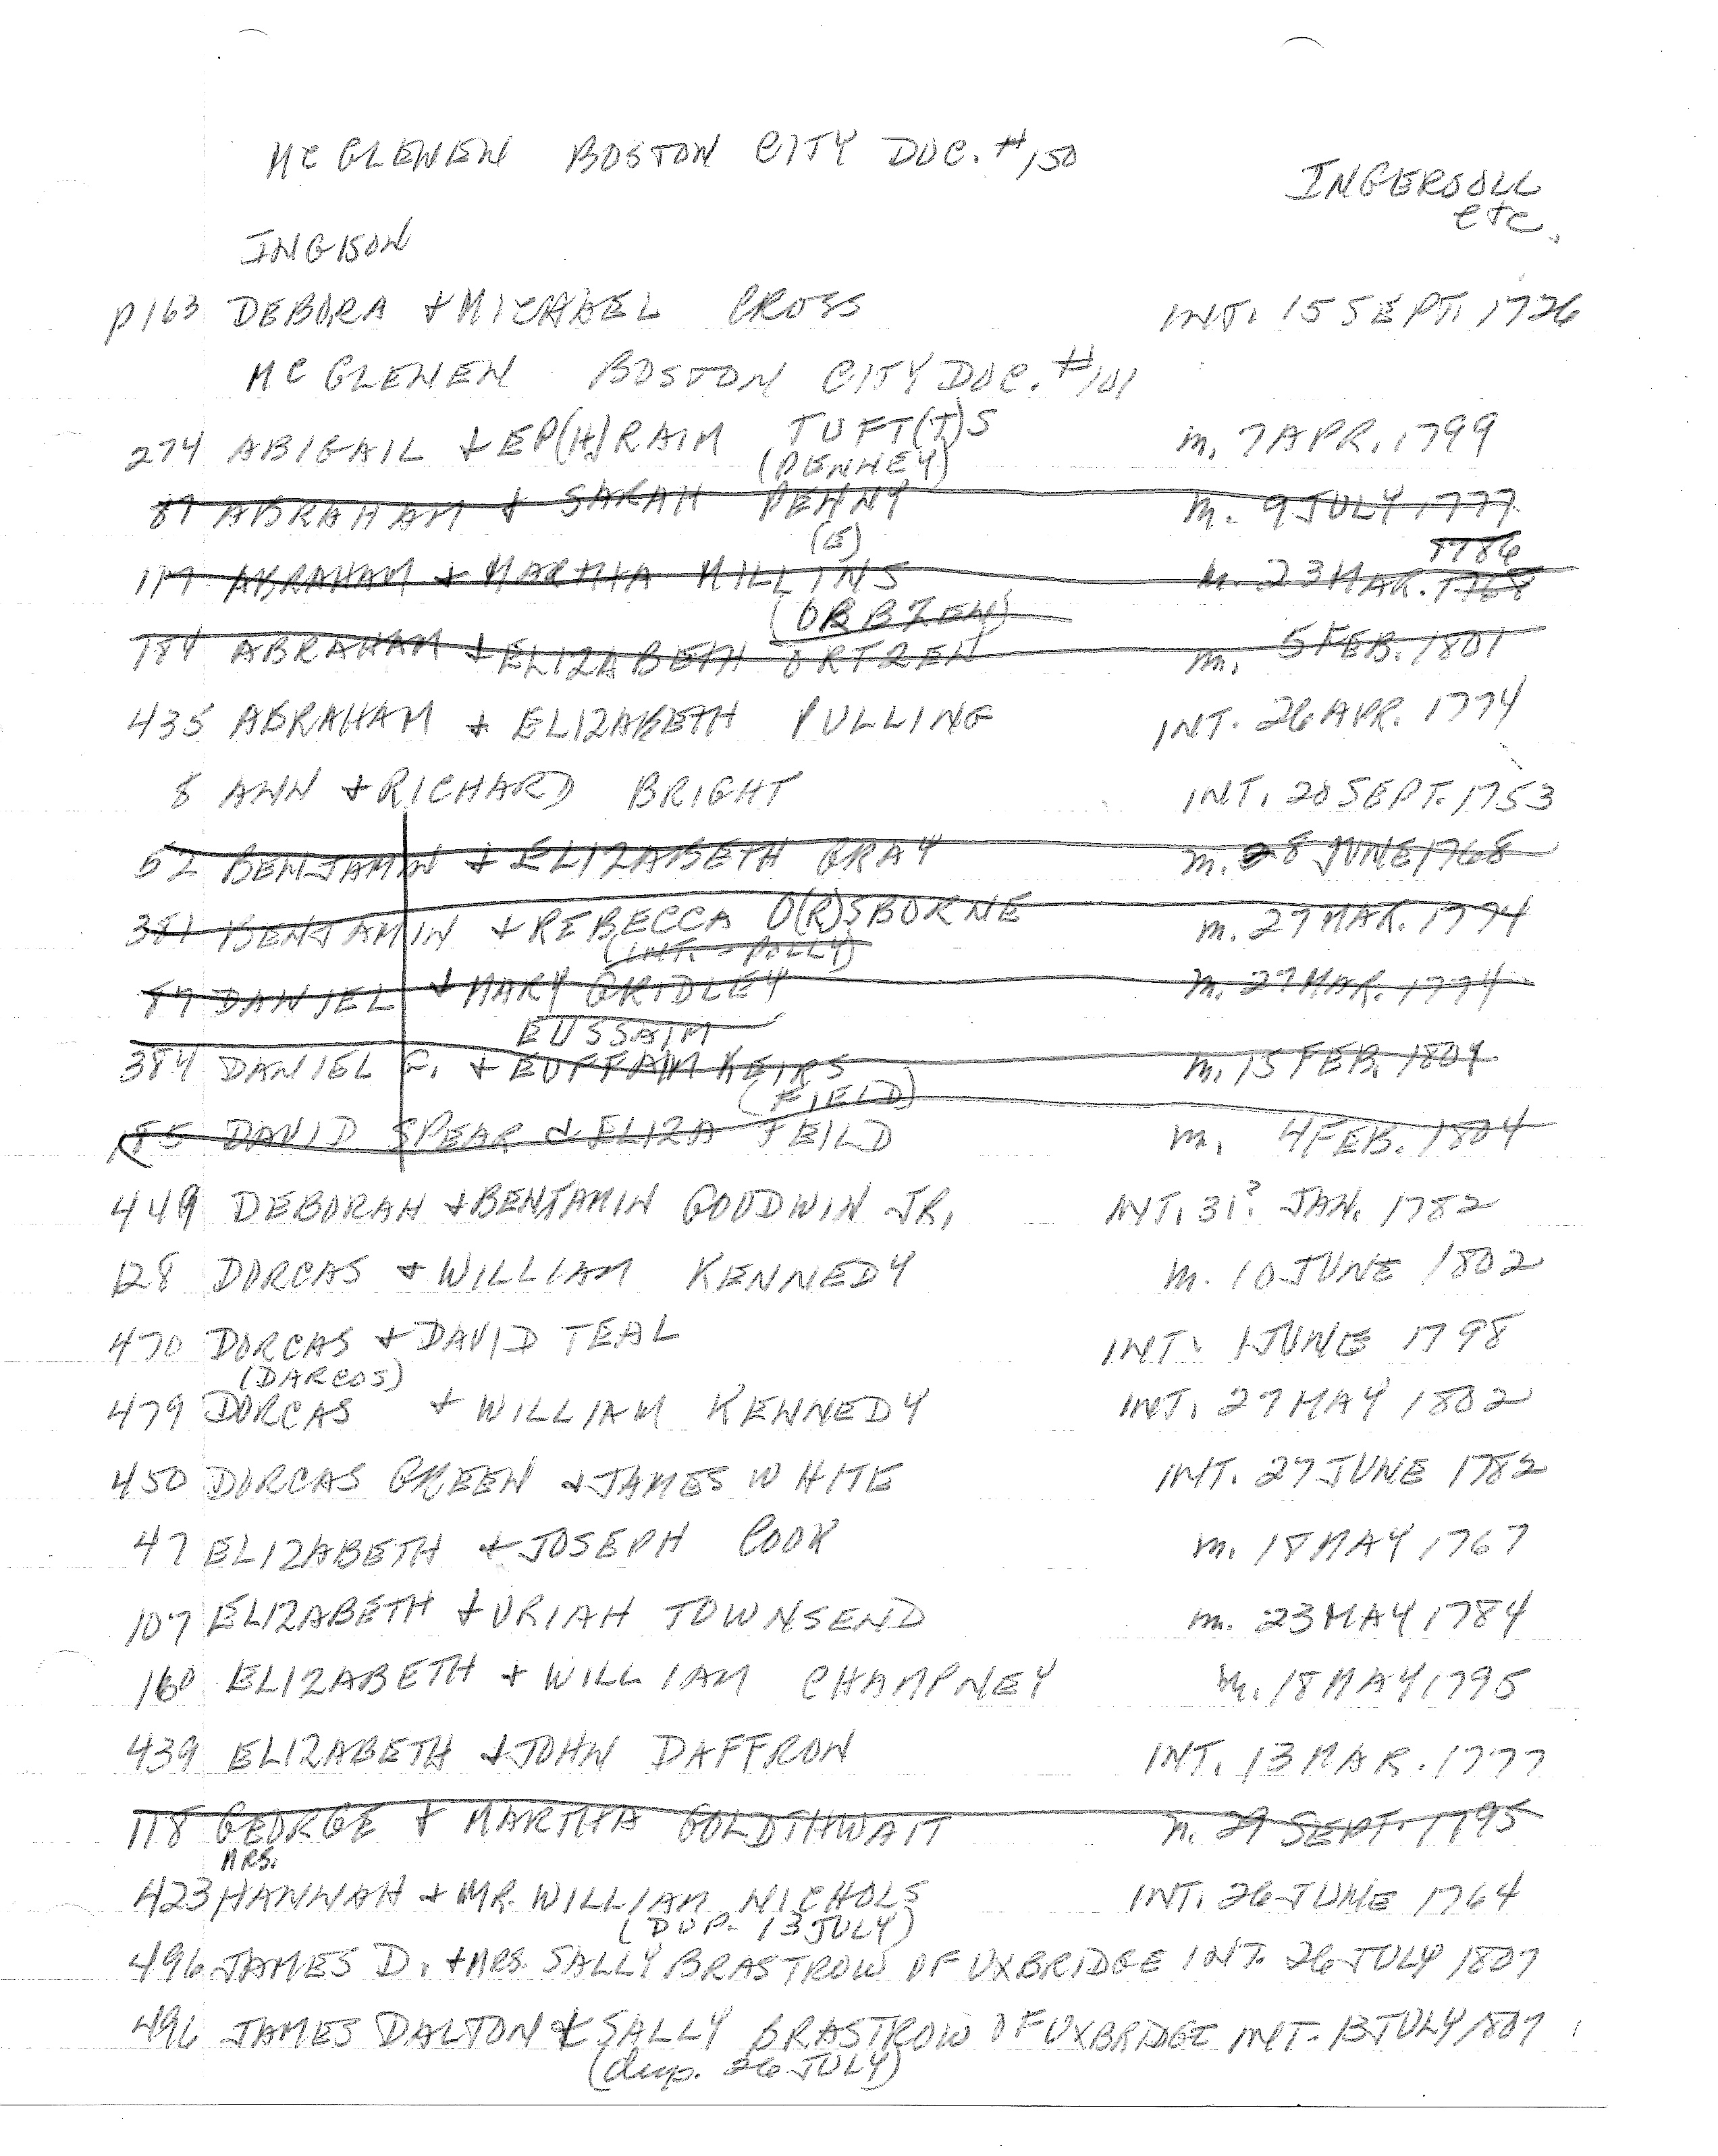 MC GLENEN BOSTON CITY DOC. #150
INGERSOLL
etc.
INGISON
p163 DEBORA + MICHAEL CROSS INT. 15 SEPT. 1726
MC GLENEN BOSTON CITY DOC. #101
274 ABIGAIL + EP(H)RAIM TUFT(T)S m. 7 APR. 1799
(DENNEY)
87 ABRAHAM + SARAH PENNY m. 9 JULY 1777
(G) 1786
117 ABRAHAM + MARTHA MILLINS m. 23 MAR. 1768
(ORBZEN)
184 ABRAHAM + ELIZABETH ORTZEN m. 5 FEB. 1801
435 ABRAHAM + ELIZABETH PULLING INT. 26 APR. 1774
8 ANN + RICHARD BRIGHT INT. 20 SEPT. 1753
52 BENJAMIN + ELIZABETH GRAY m. 28 JUNE 1768
381 BENJAMIN + REBECCA O(R)SBORNE m. 27 MAR. 1774
(INT. - POLLY)
87 DANIEL + MARY GRIDLEY m. 27 MAR. 1774
EUSSAIM
384 DANIEL G. + EUFFAM KEIRS m. 15 FEB. 1804
(FIELD)
185 DAVID SPEAR & ELIZA FEILD m. 4 FEB. 1804
449 DEBORAH + BENJAMIN GOODWIN JR. INT. 31? JAN. 1782
128 DORCAS + WILLIAM KENNEDY m. 10 JUNE 1802
470 DORCAS + DAVID TEAL INT. 1 JUNE 1798
(DARCOS)
479 DORCAS + WILLIAM KENNEDY INT. 27 MAY 1802
450 DORCAS GREEN & JAMES WHITE INT. 27 JUNE 1782
47 ELIZABETH + JOSEPH COOK m. 18 MAY 1767
107 ELIZABETH + URIAH TOWNSEND m. 23 MAY 1784
160 ELIZABETH + WILLIAM CHAMPNEY m. 18 MAY 1795
439 ELIZABETH + JOHN DAFFRON INT. 13 MAR. 1777
118 GEORGE + MARTHA GOLDTHWAIT m. 29 SEPT. 1795
MRS.
423 HANNAH + MR. WILLIAM NICHOLS INT. 26 JUNE 1764
(DUP. 13 JULY)
496 JAMES D. + MRS. SALLY BRASTROW OF UXBRIDGE INT. 26 JULY 1807
496 JAMES DALTON & SALLY BRASTROW OF UXBRIDGE INT. 13 JULY 1807
(dup. 26 JULY)